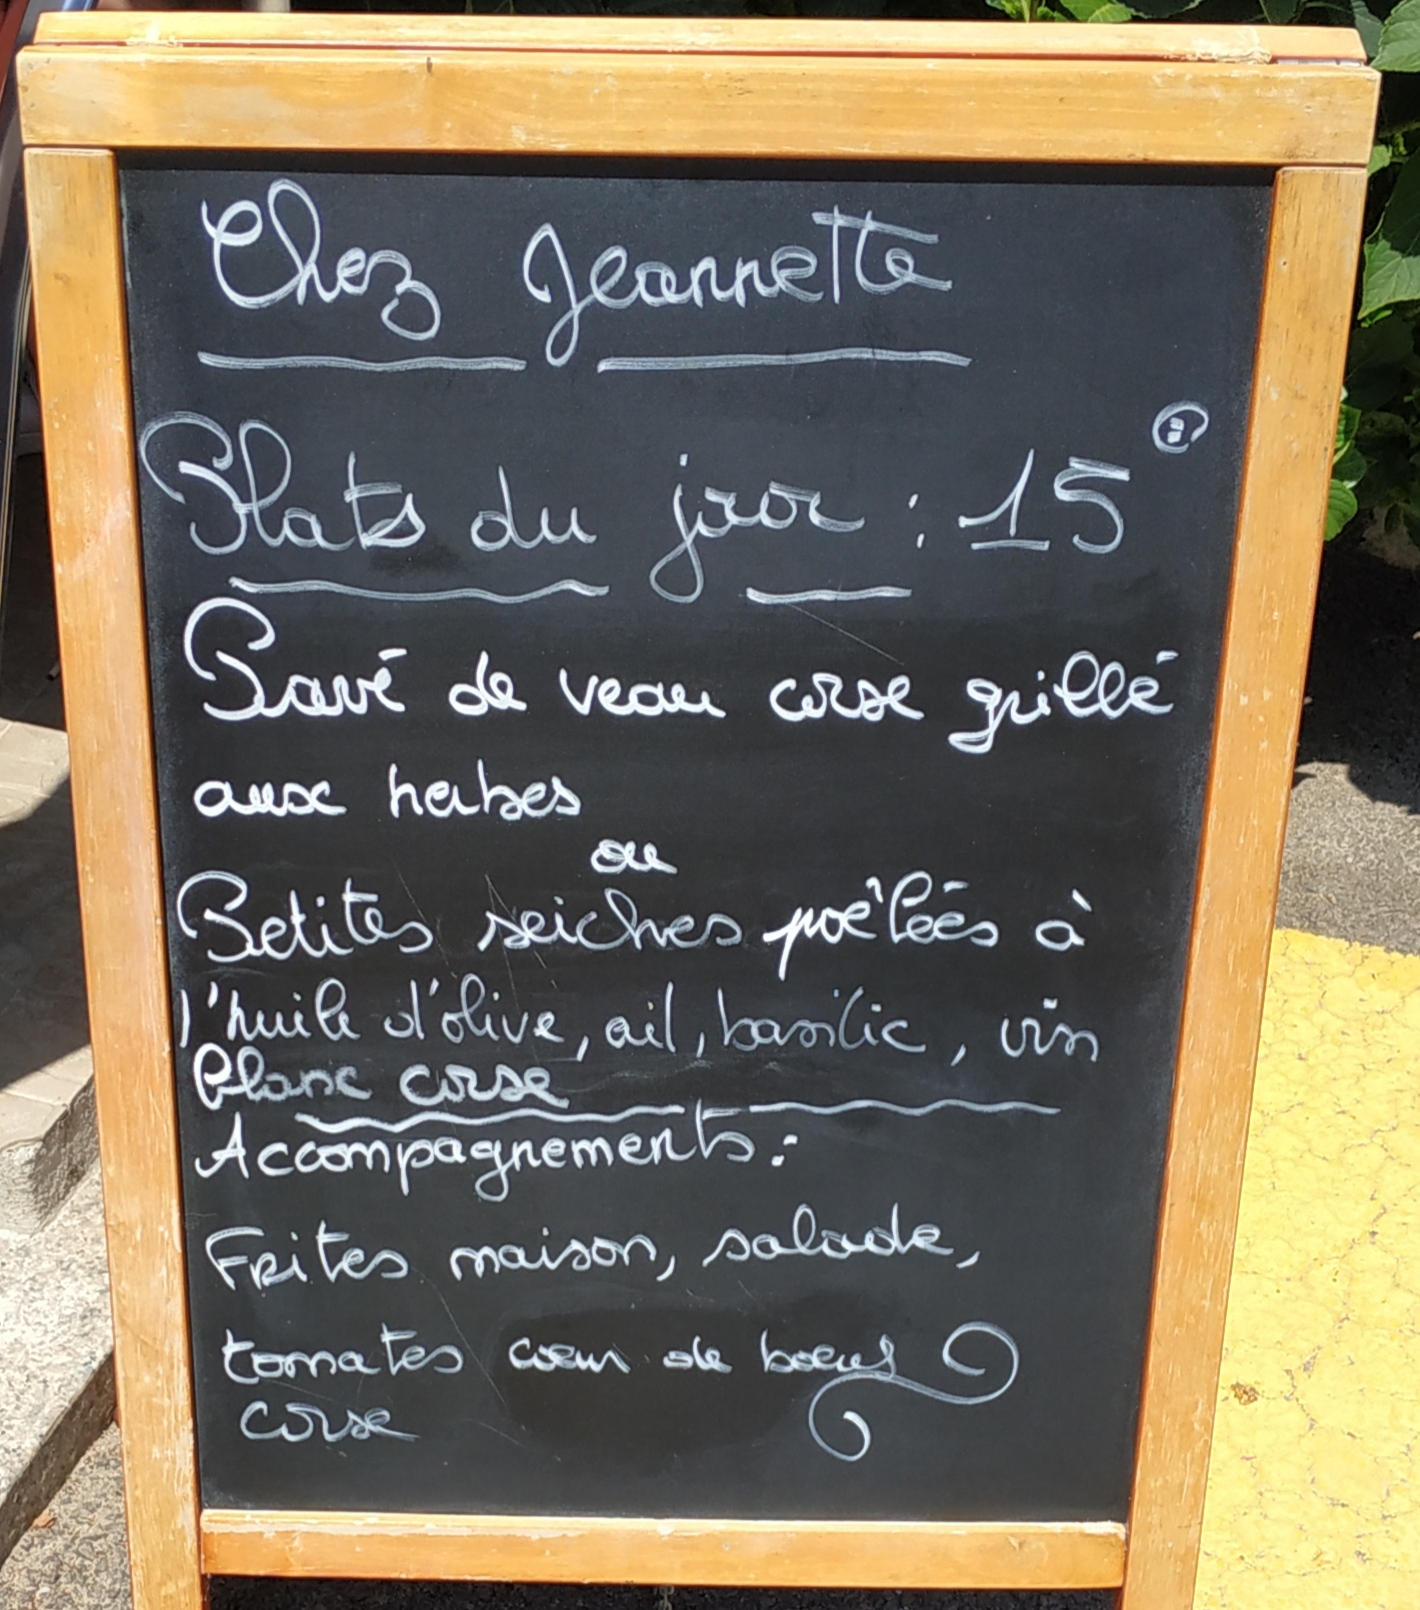 Chez Jeannette
Plats du jour : 15
Pavé de veau corse grillé
aux herbes
ou
Petites seiches poêlées à
l'huile d'olive, ail, basilic, vin
blanc corse
Accompagnements :
Frites maison, salade,
tomates cœur de bœuf
corse